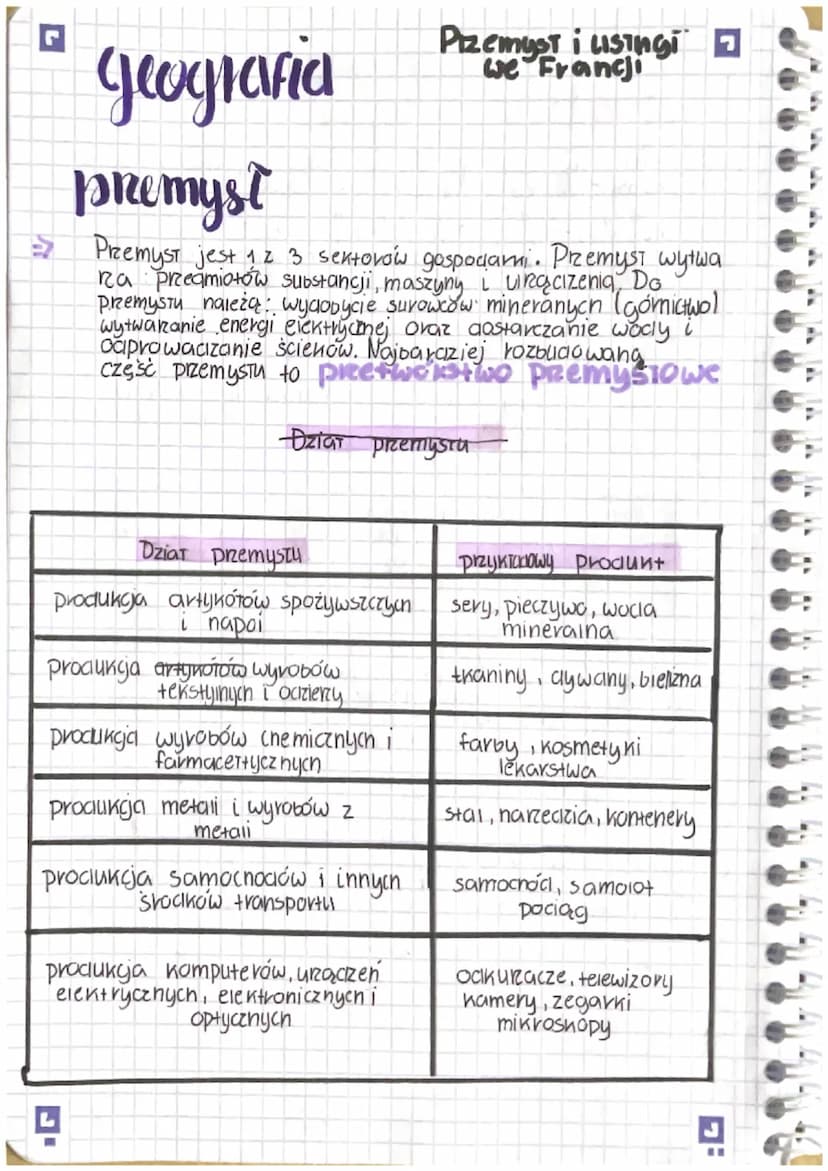 geografia
Przemysł i usługi
we Francji
przemysł
⇒ Przemysł jest 1 z 3 sektorów gospodarki. Przemysł wytwa
rza przedmiotów substancji, maszyny i urządzenia. Do
przemysłu należą: wydobycie surowców mineranych (górnictwo)
wytwarzanie energi elektrycznej oraz dostarczanie wody i
odprowadzanie ścieków. Najbardziej rozbudowaną
część przemysłu to przetwórstwo przemysłowe
Dział przemysłu
Dział przemysłu
przykładowy produkt
produkcja artykółów spożywszczych
i napoi
sery, pieczywo, woda
mineralna
produkcja artykółów wyrobów
tekstylnych i odzierzy
tkaniny, dywany, bielizna
produkcja wyrobów chemicznych i
farmacertycznych
farby, kosmetyki
lekarstwa
produkcja metali i wyrobów z
metali
stal, narzedzia, kontenery
produkcja samochodów i innych
środków transportu
samochód, samolot
pociąg
produkcja komputerów, urządzeń
elektrycznych, elektronicznych i
optycznych
odkurzacze, telewizory
kamery, zegarki
mikroskopy